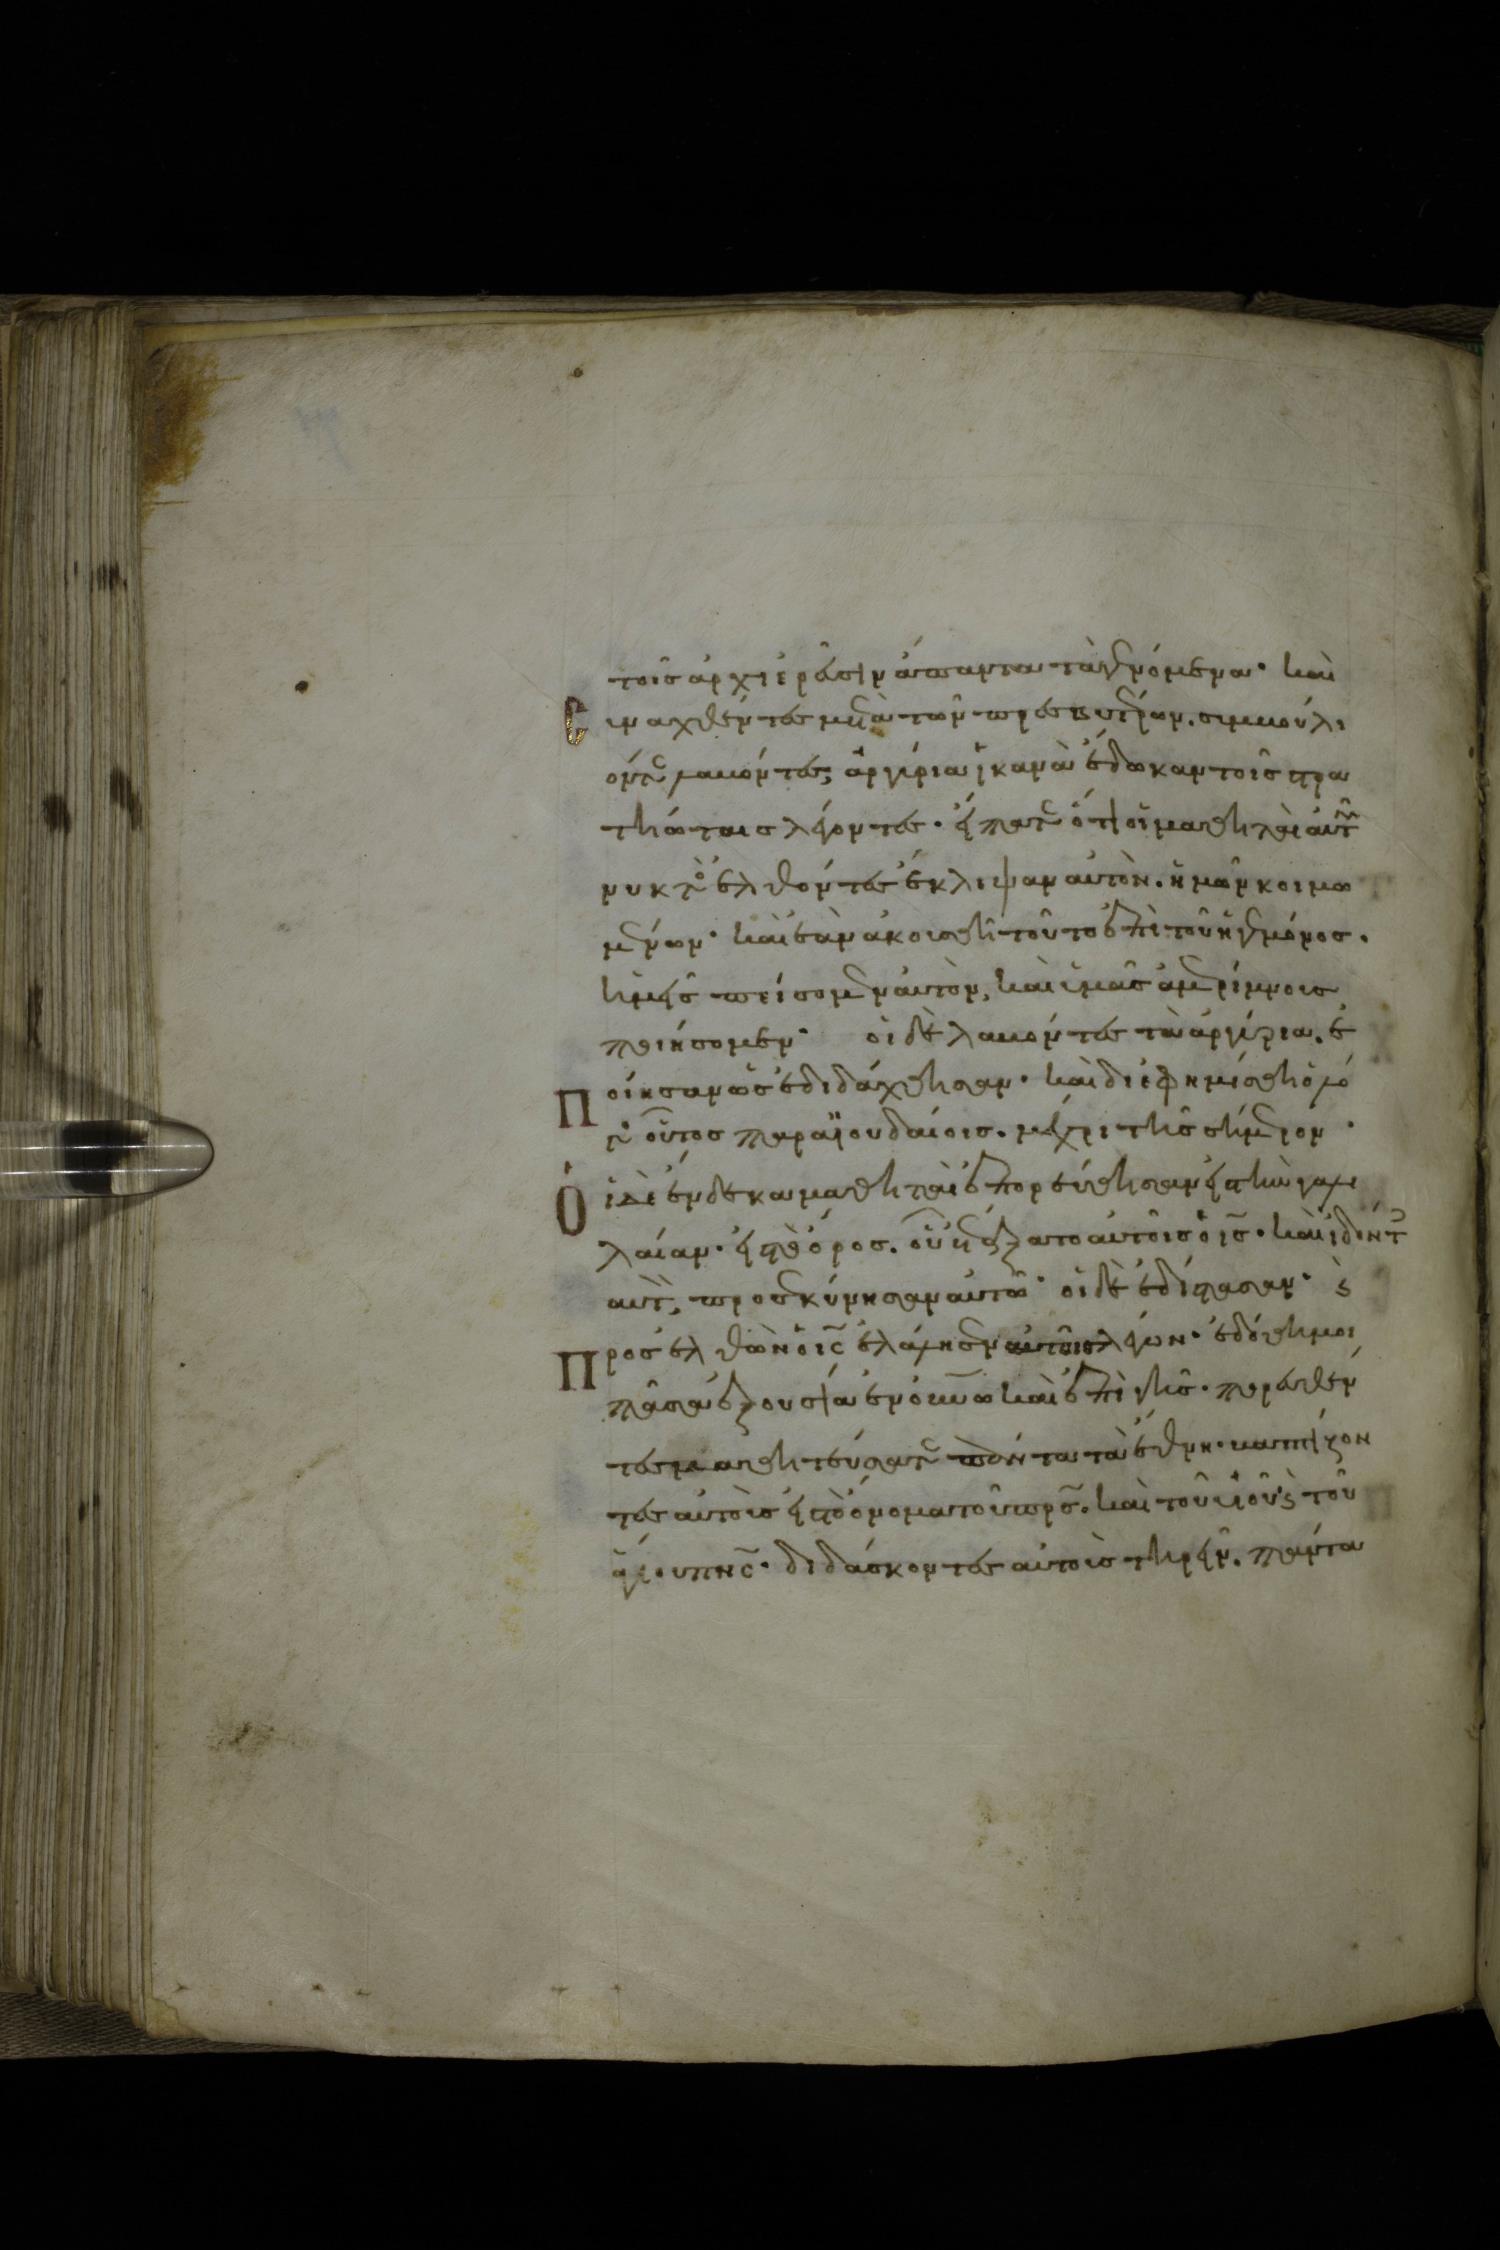 τοῖς ἀρχιερεῦσιν ἅπαντα τὰ γενόμενα· καὶ
συναχθέντες μετὰ τῶν πρεσβυτέρων. συμβούλι
όν τε λαβόντες, ἀργύρια ἱκανὰ ἔδωκαν τοῖς στρα
τιώταις λέγοντες· εἴπατε ὅτι οἱ μαθηταὶ αὐτοῦ
νυκτὸς ἐλθόντες ἔκλεψαν αὐτὸν. ἡμῶν κοιμω
μένων· καὶ ἐὰν ἀκουσθῆ τοῦτο ἐπὶ τοῦ ἡγεμόνος.
ἡμεῖς πείσομεν αὐτὸν, καὶ ὑμᾶς ἀμερίμνους
ποιήσομεν· οἱ δὲ λαβόντες τὰ ἀργύρια. ἐ
ποίησαν ὡς ἐδιδάχθησαν· καὶ διεφημίσθη ὁ λό
γος οὗτος παρὰ ἰουδαίοις. μέχρι τῆς σήμερον·
Οἱ δὲ ἕνδεκα μαθηταὶ ἐπορεύθησαν εἰς τὴν γαλι
λαίαν· εἰς τὸ ὄρος. οὗ ἐτάξατο αὐτοῖς ὁ ις· καὶ ἰδόντες
αὐτὸν, προσεκύνησαν αὐτῶ· οἱ δὲ ἐδίστασαν· καὶ
Προσελθὼν ὁ ις ἐλάλησεν αὐτοῖς λέγων· ἐδόθη μοι
πᾶσα ἐξουσία ἐν οὐνω καὶ ἐπὶ γῆς· πορευθέν
τες μαθητεύσατε πάντα τὰ ἔθνη· βαπτίζον
τες αὐτοὺς εἰς τὸ ὄνομα τοῦ πρς. καὶ τοῦ υἱοῦ καὶ τοῦ
ἁγίου πνς· διδάσκοντες αὐτοὺς τηρεῖν. πάντα